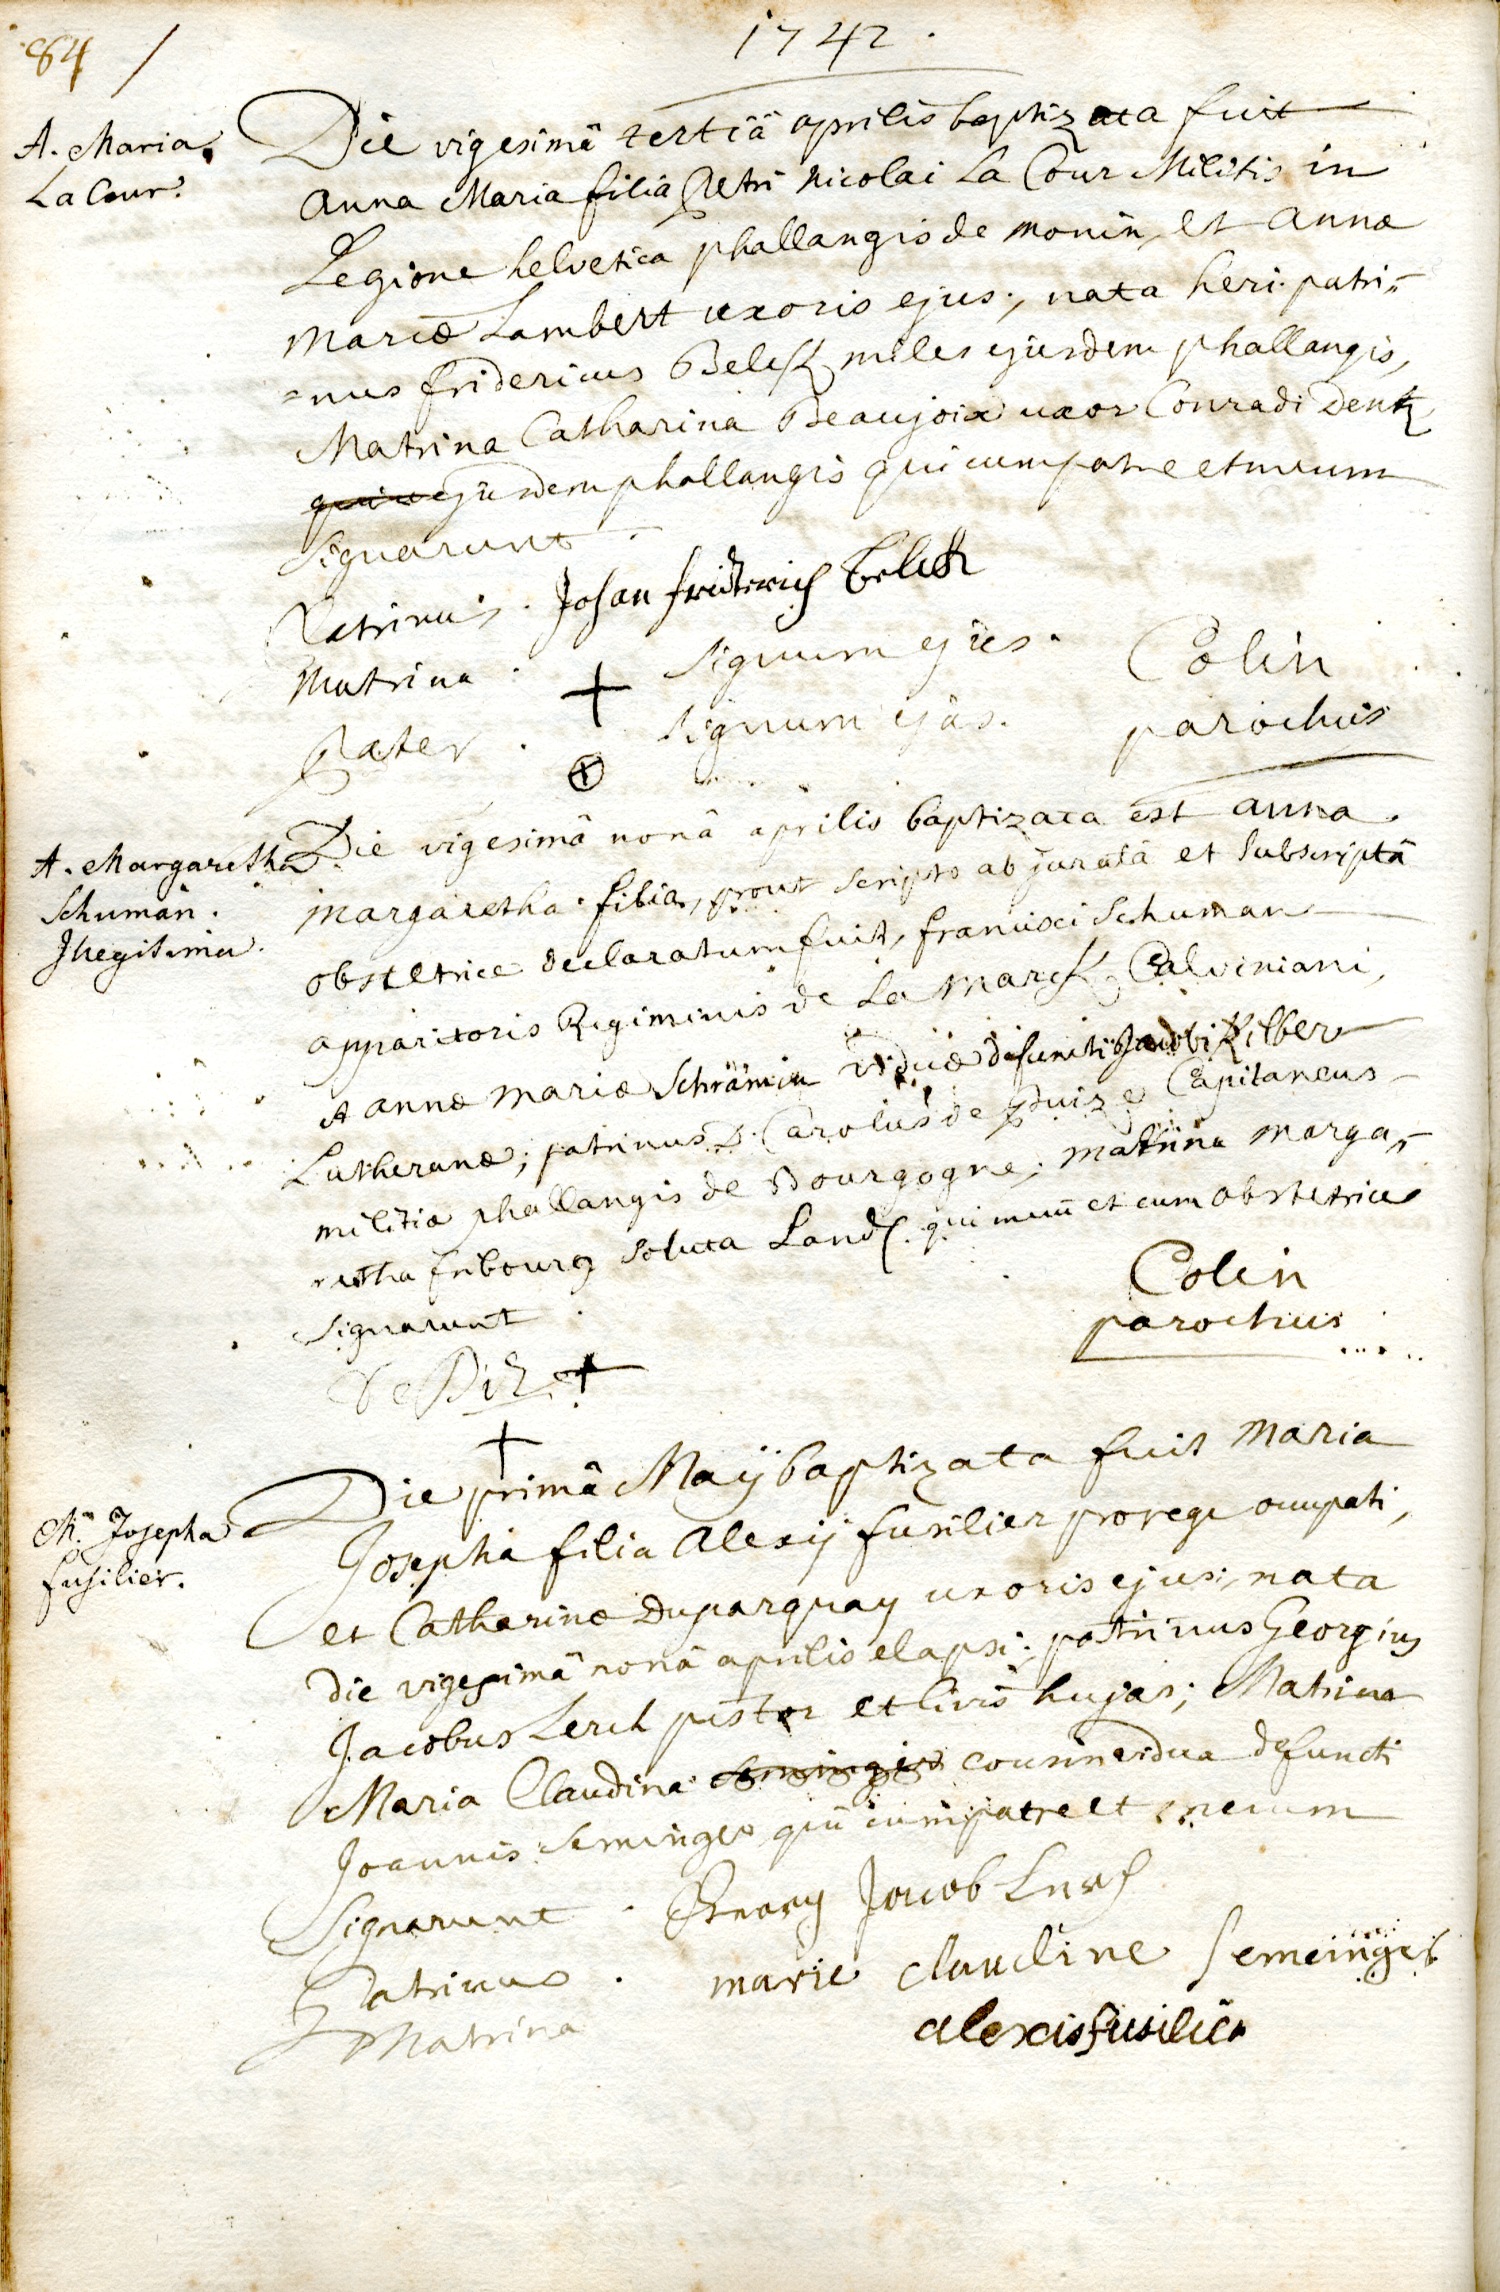 84 /
1742.
A. Maria
La Cour.
Die vigesimâ tertiâ aprilis baptizata fuit
anna Maria filia Petri Nicolai La Cour Militis in
Legione helvetica phallangis de monin, et annæ
mariæ Lambert uxoris ejus, nata heri. patri=
=nus fridericus Belck miles ejusdem phallangis,
Matrina Catharina Beaujoix uxor Conradi Dentz
ejusdem phallangis qui cum patre et mecum
signarunt.
Patrinus. Johan friderich Belck
Matrina. + signum ejus.
Pater. signum ejus.
Colin
parochus
A. Margaretha
Schuman.
Illegitima.
Die vigesimâ nonâ aprilis baptizata est anna
margaretha filia, prout scripto ab juratâ et subscriptâ
obstetrice declaratum fuit, francisci Schuman
apparitoris Regiminis de La Marck Calviniani,
et annæ mariæ Schrämin viduæ defuncti Jacobi Kilber
Lutheranæ; patrinus D. Carolus de Capitaneus
militiæ phallangis de Bourgogne; matrina marga=
retha fribourg soluta qui mecū et cum obstetrice
signarunt.
Colin
parochus
+
+
M. Josepha
fusilier.
Die primâ Maÿ baptizata fuit Maria
Josepha filia Alexij fusilier pro rege occupati,
et Catharinæ Duparquay uxoris ejus, nata
die vigesimâ nonâ aprilis elapsi; patrinus Georgius
Jacobus Lerch pistor et civis hujas; Matrina
Maria Claudina cousin vidua defuncti
Joannis Seminger qui cum patre et mecum
signarunt.
Patrinus. Jacob Lerch
Matrina marie claudine semeinger
alexis fusilier